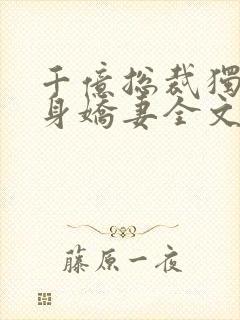 千億總裁獨
身嬌妻全文
藤原一夜